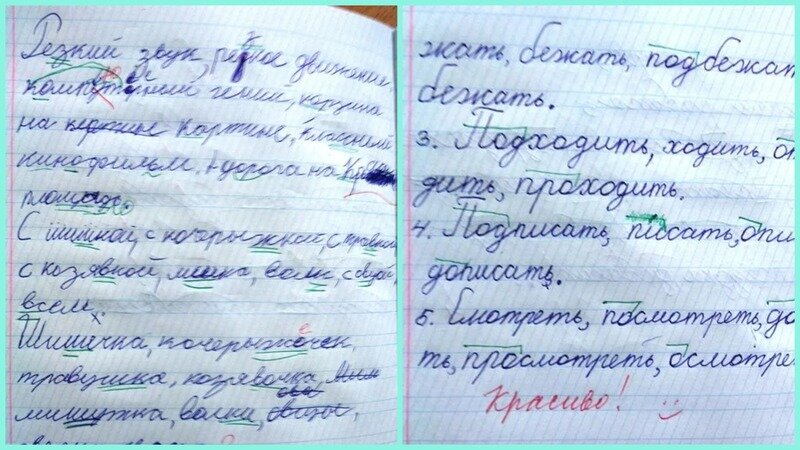 Резкий звук, резкое движение,
компутерный гений, корзина
на картине, классный
кинофильм, дорога на
площадь.
С шишкой, с кочерыжкой, с травкой,
с козявкой, мишка, волк, с
всем.
Шишечка, кочерыжечек,
травушка, козявочка,
мишужка, волки,
жать, бежать, подбежат
бежать.
3. Подходить, ходить, от
дить, проходить.
4. Подписать, писать, опи
дописать.
5. Смотреть, посмотреть, до
ть, просмотреть, осмотре
Красиво!